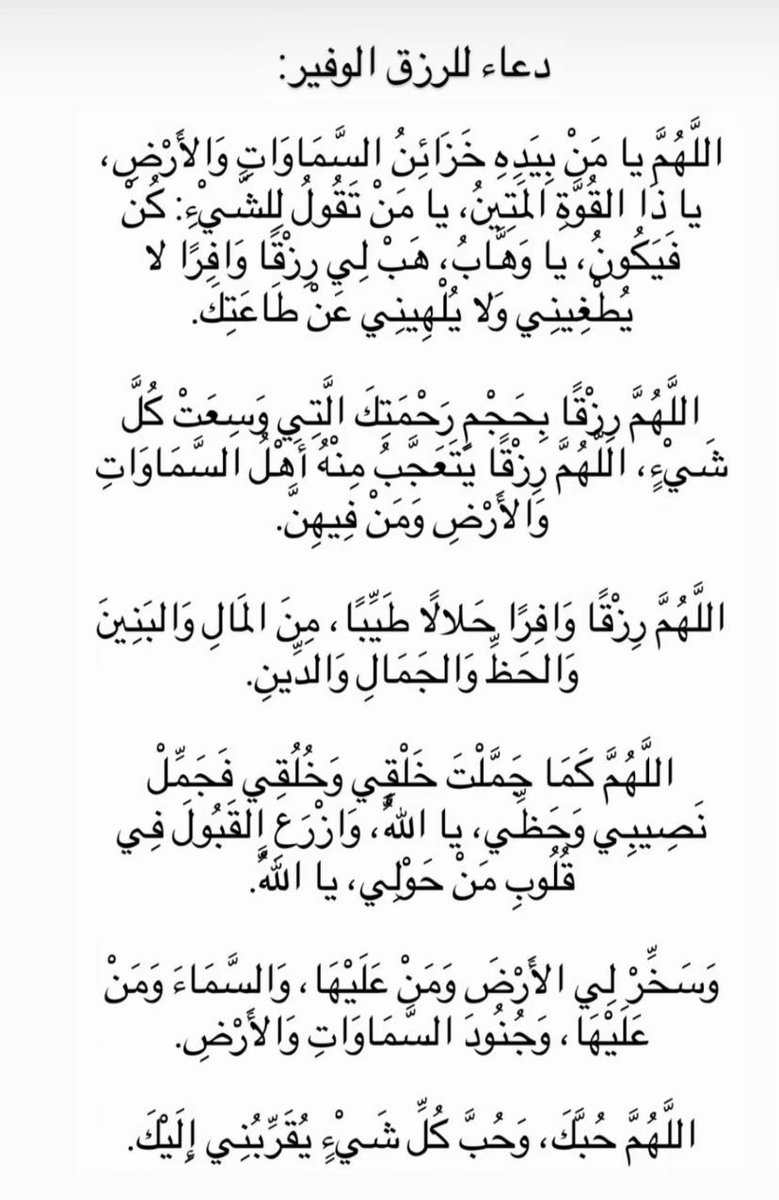 دعاء للرزق الوفير:
اللَّهُمَّ يا مَنْ بِيَدِهِ خَزَائِنُ السَّمَاوَاتِ وَالأَرْضِ،
يا ذَا القُوَّةِ المَتِينُ، يا مَنْ تَقُولُ لِلشَّيْءِ: كُنْ
فَيَكُونُ، يا وَهَّابُ، هَبْ لِي رِزْقًا وَافِرًا لا
يُطْغِينِي وَلا يُلْهِينِي عَنْ طَاعَتِكَ.
اللَّهُمَّ رِزْقًا بِحَجْمِ رَحْمَتِكَ الَّتِي وَسِعَتْ كُلَّ
شَيْءٍ، اللَّهُمَّ رِزْقًا يَتَعَجَّبُ مِنْهُ أَهْلُ السَّمَاوَاتِ
وَالأَرْضِ وَمَنْ فِيهِنَّ.
اللَّهُمَّ رِزْقًا وَافِرًا حَلالًا طَيِّبًا، مِنَ المَالِ وَالبَنِينَ
وَالحَظِّ وَالجَمَالِ وَالدِّينِ.
اللَّهُمَّ كَمَا جَمَّلْتَ خَلْقِي وَخُلُقِي فَجَمِّلْ
نَصِيبِي وَحَظِّي، يا اللهُ، وَازْرَعِ القَبُولَ فِي
قُلُوبِ مَنْ حَوْلِي، يا اللهُ.
وَسَخِّرْ لِي الأَرْضَ وَمَنْ عَلَيْهَا، وَالسَّمَاءَ وَمَنْ
عَلَيْهَا، وَجُنُودَ السَّمَاوَاتِ وَالأَرْضِ.
اللَّهُمَّ حُبَّكَ، وَحُبَّ كُلِّ شَيْءٍ يُقَرِّبُنِي إِلَيْكَ.